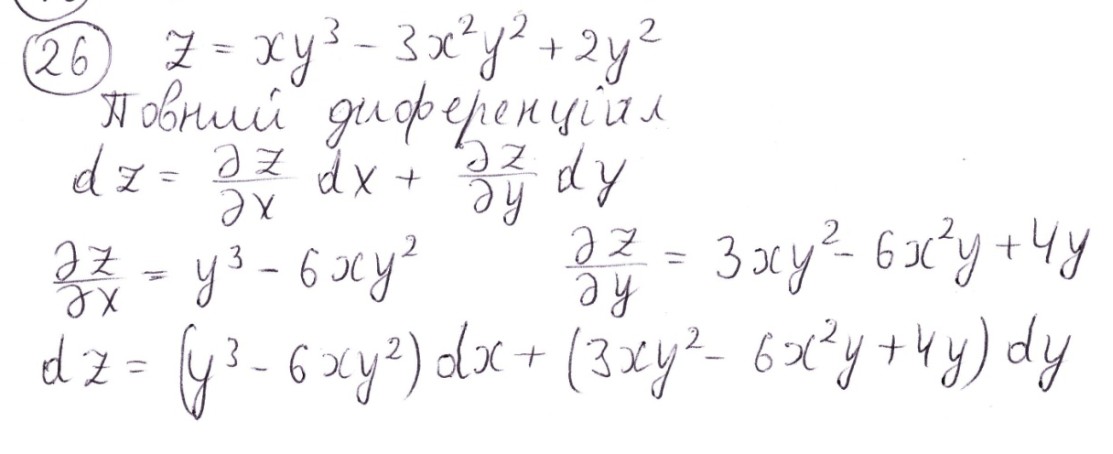 26 z = xy³ - 3x²y² + 2y²
Повний диференціал
dz = ∂z/∂x dx + ∂z/∂y dy
∂z/∂x = y³ - 6xy² ∂z/∂y = 3xy² - 6x²y + 4y
dz = (y³ - 6xy²) dx + (3xy² - 6x²y + 4y) dy